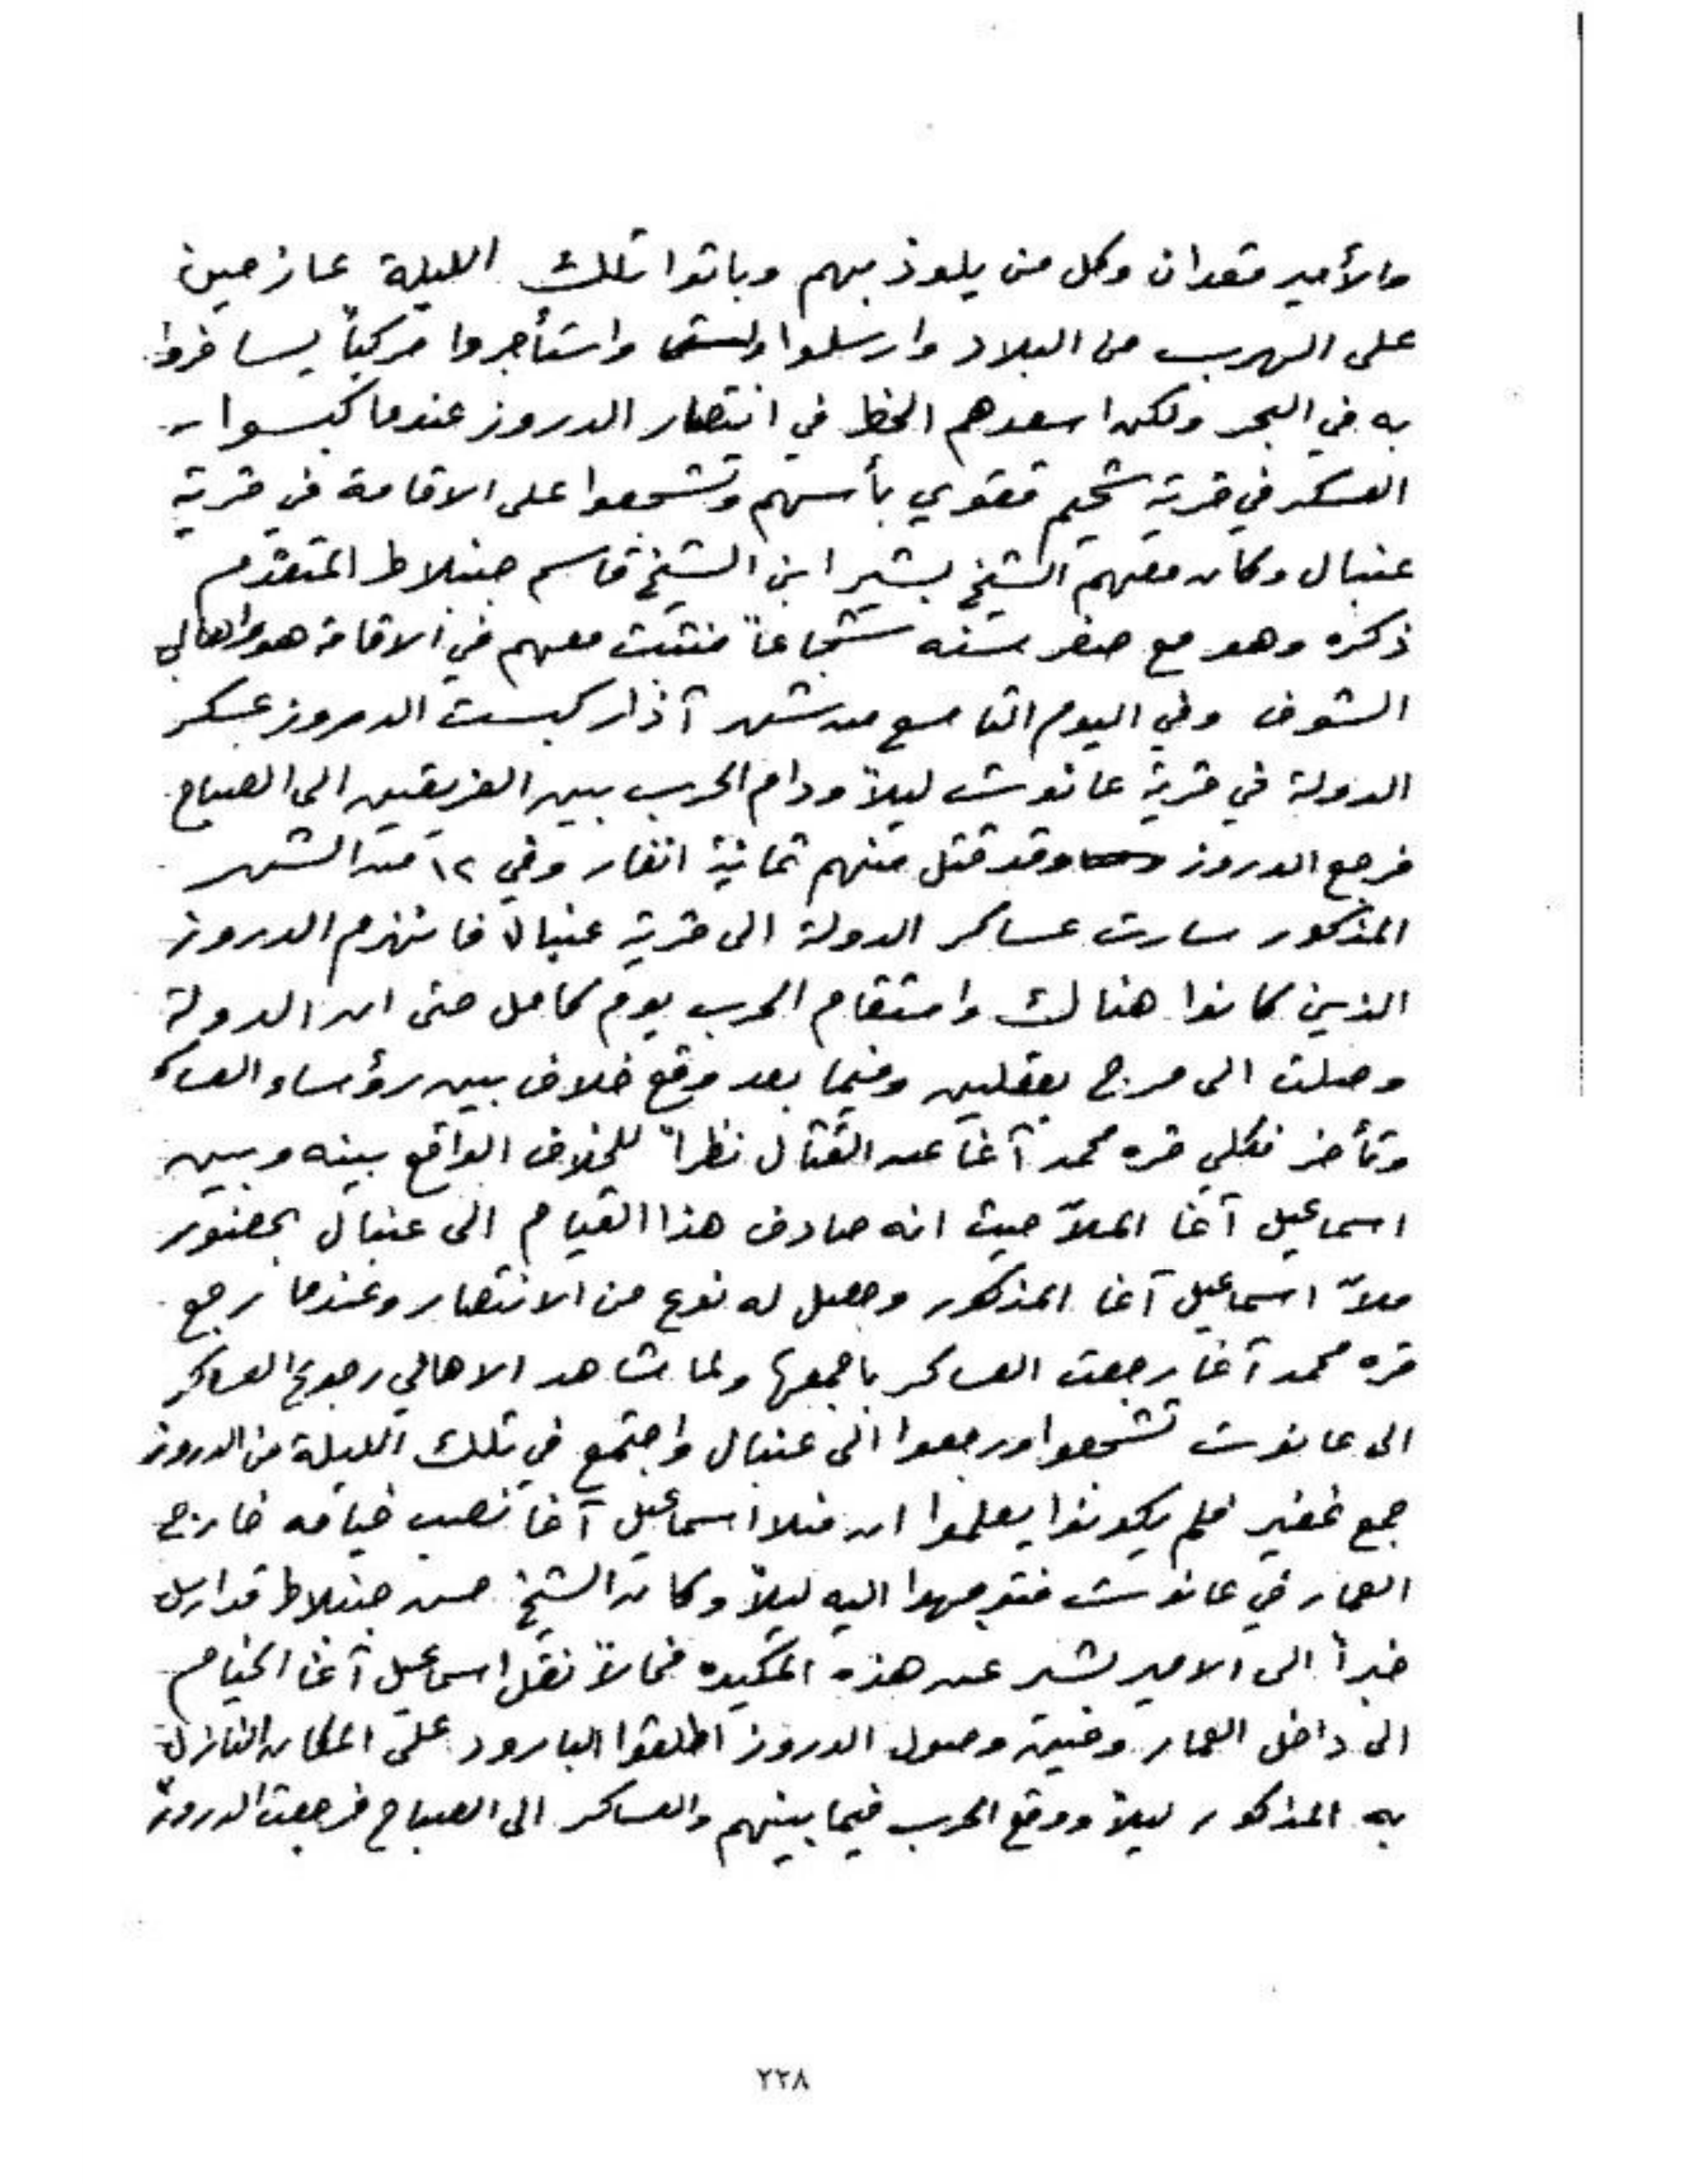 والأمير قعدان وكل من يلوذ بهم وباتوا تلك الليلة عازمين
على الهرب من البلاد وارسلوا واستأجروا مركباً ليسافروا
به في البحر ولكن اسعدهم الحظ في انتصار الدروز عندما كبسوا
العسكر في قرية شحيم فقوي بأسهم وتشجعوا على الاقامة في قرية
عنبال وكان معهم الشيخ بشير ابن الشيخ قاسم جنبلاط المتقدم
ذكره وهو مع صغر سنه شجاعاً فتثبت معهم في الاقامة هو واهالي
الشوف وفي اليوم التاسع من شهر آذار كبست الدروز عسكر
الدولة في قرية عانوت ليلاً ودام الحرب بين الفريقين الى الصباح
فرجع الدروز وقد قتل منهم ثمانية انفار وفي ١٢ من الشهر
المذكور سارت عساكر الدولة الى قرية عنبال فانهزم الدروز
الذين كانوا هناك واستقام الحرب يوم كامل حتى ان الدولة
وصلت الى مرج بعقلين وفيما بعد وقع خلاف بين رؤساء العساكر
وتأخر فكلي قره محمد آغا عن القتال نظراً للخلاف الواقع بينه وبين
اسماعيل آغا الملاّ حيث انه صادف هذا القيام الى عنبال بحضور
ملاّ اسماعيل آغا المذكور وحصل له نوع من الانتصار وعندما رجع
قره محمد آغا رجعت العساكر باجمعها ولما شاهد الاهالي رجوع العساكر
الى عانوت تشجعوا ورجعوا الى عنبال واجتمع في تلك الليلة من الدروز
جمع غفير فلم يكونوا يعلموا ان منلا اسماعيل آغا نصب خيامه خارج
العمار في عانوت فتوجهوا اليه ليلاً وكان الشيخ حسن جنبلاط قد ارسل
خبراً الى الامير بشير عن هذه المكيده فحالاً نقل اسماعيل آغا الخيام
الى داخل العمار وحين وصول الدروز اطلقوا البارود على المكان النازل
به المذكور ليلاً ووقع الحرب فيما بينهم والعساكر الى الصباح فرجعت الدروز
٢٣٨